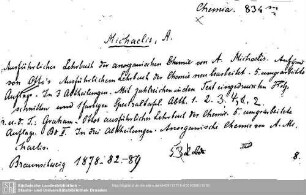 Chemia. 834 m
Michaelis, A.
Ausführliches Lehrbuch der anorganischen Chemie von A. Michaelis. Auf Grund
von Otto's Ausführlichem Lehrbuch der Chemie neu bearbeitet. 5. umgearbeitete
Auflage. In 3 Abtheilungen. Mit zahlreichen in den Text eingedruckten Holz-
schnitten und Spectraltafel. Abth. 1. 2. 3. 4,
u. d. T.: Graham-Otto's ausführliches Lehrbuch der Chemie. 5. umgearbeitete
Auflage. Bd II. In drei Abtheilungen. Anorganische Chemie von A. Mi-
chaelis.
Braunschweig 1878-82-89